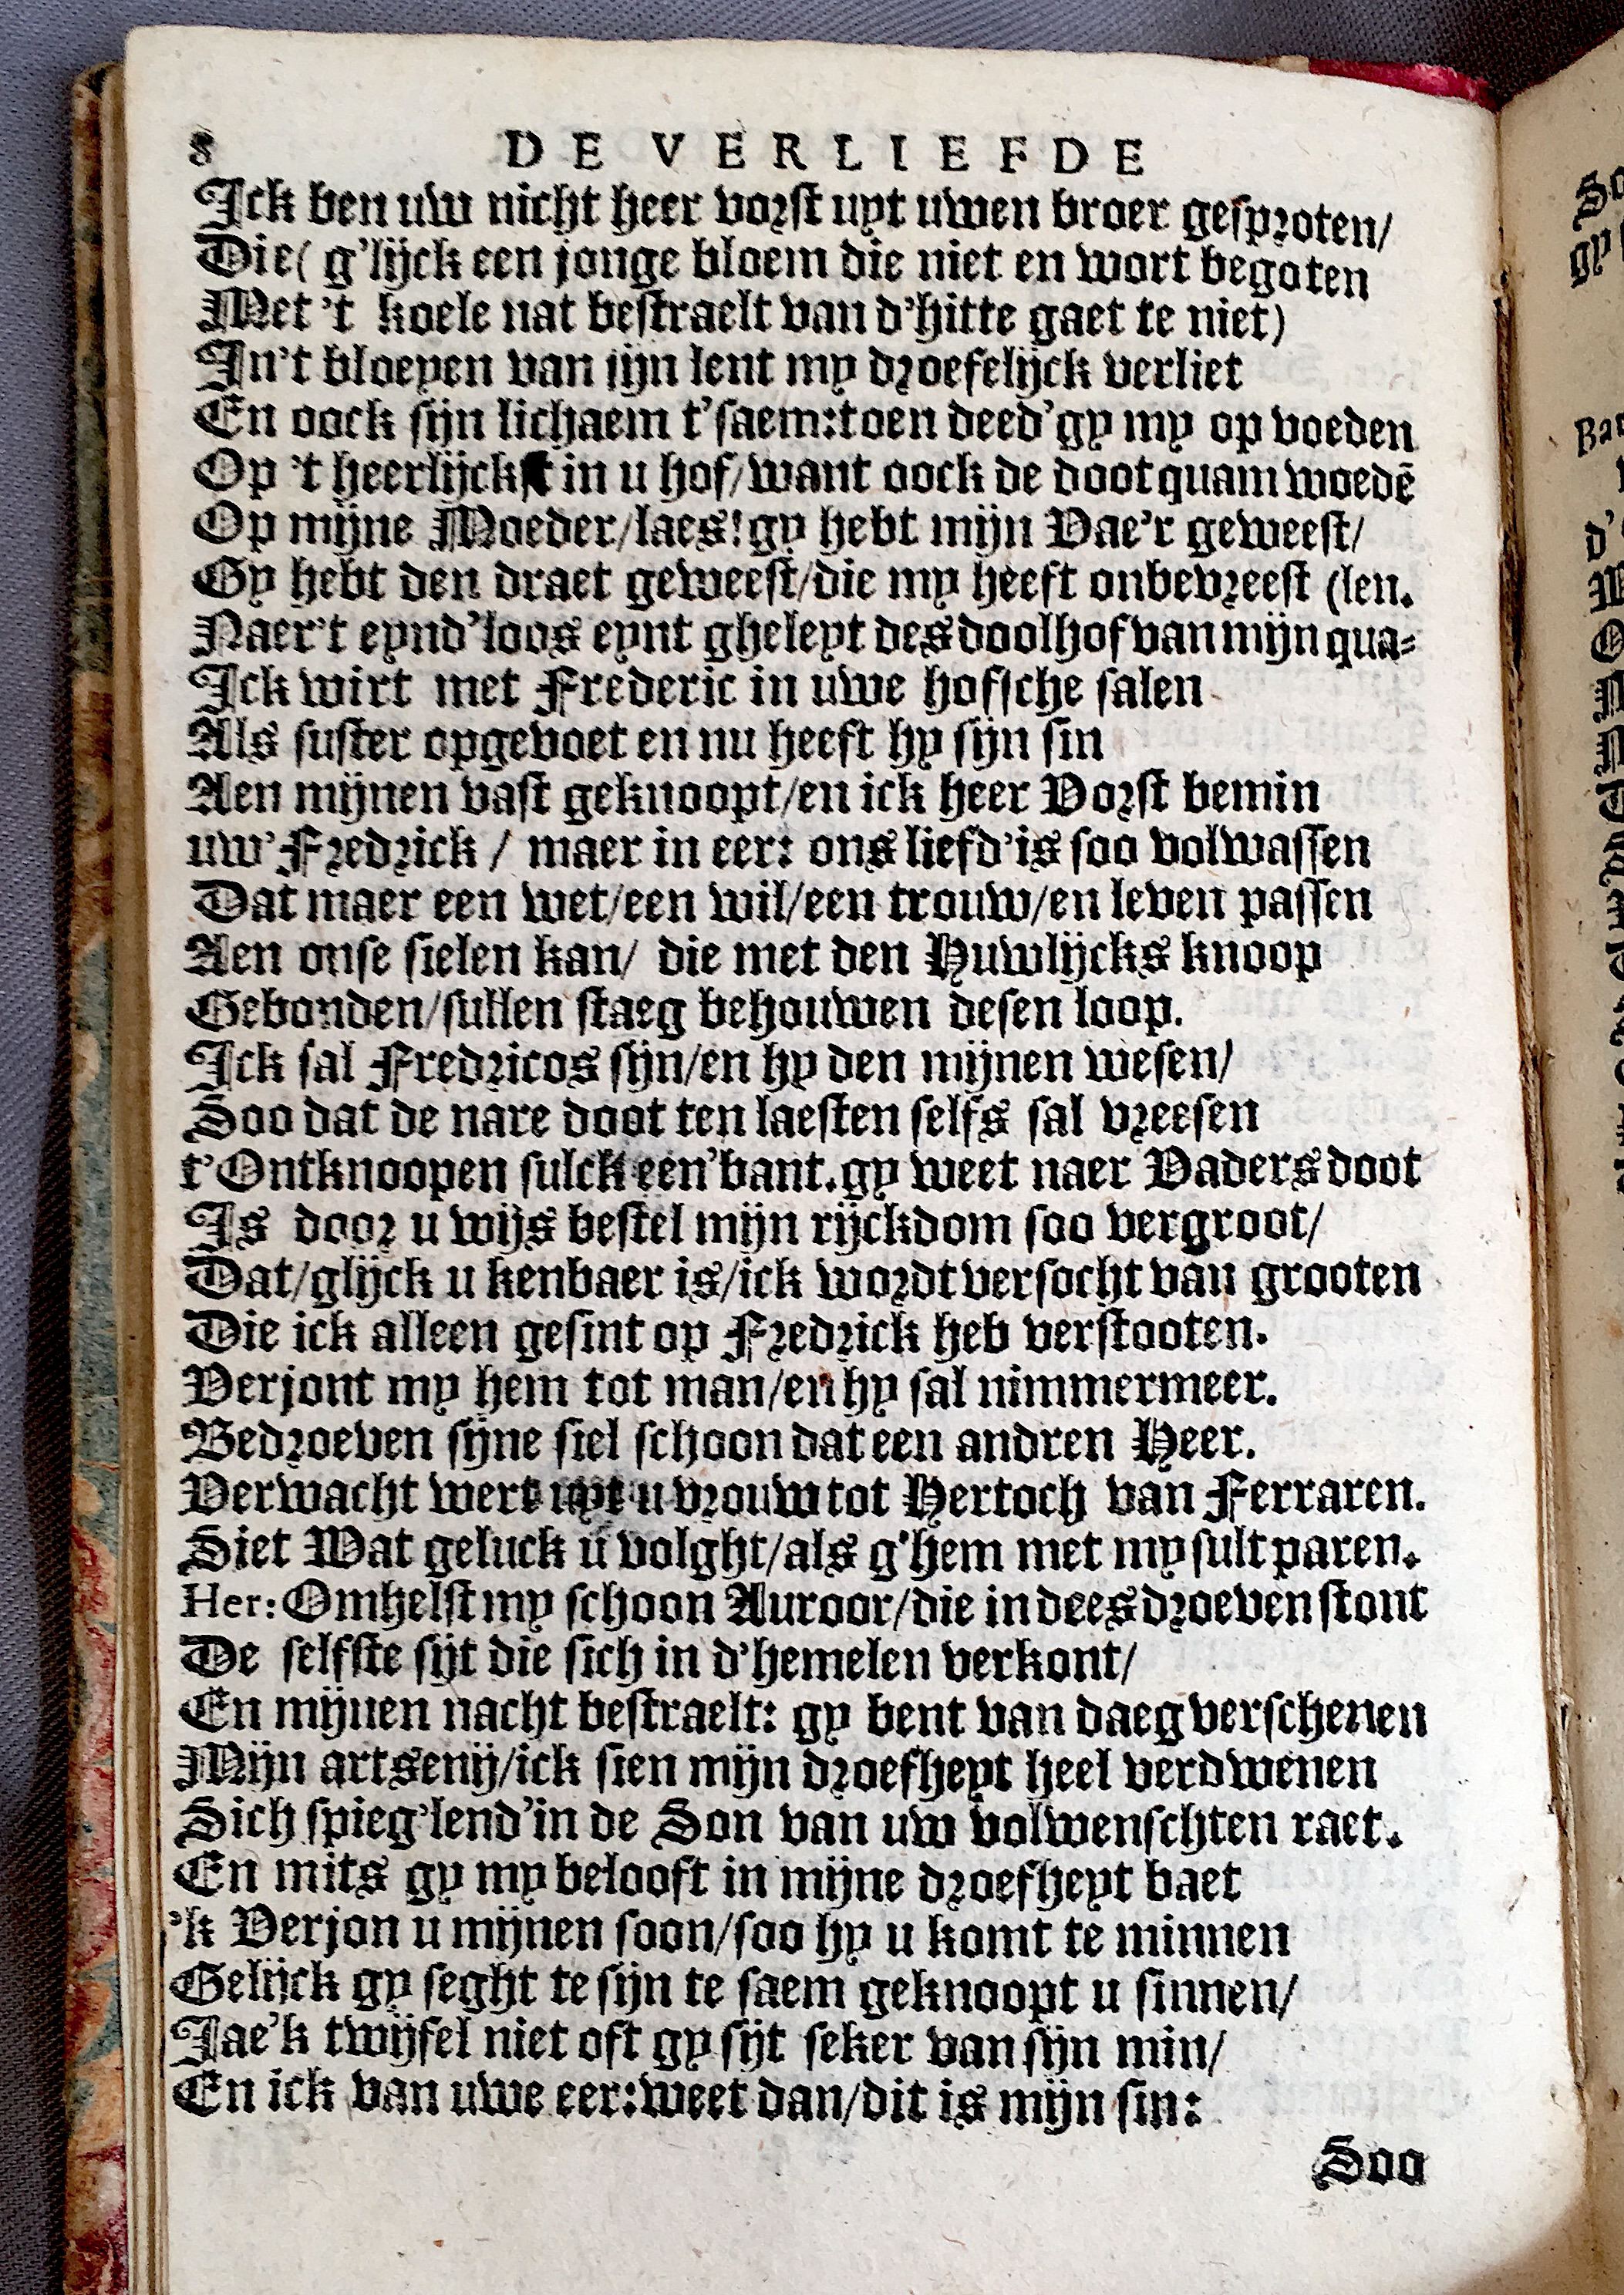 8 DE VERLIEFDE
Ick ben uw nicht heer vorst uyt uwen broer gesproten/
Die( g'lijck een jonge bloem die niet en wort begoten
Met 't koele nat bestraelt van d'hitte gaet te niet)
In't bloeyen van sijn lent my droefelijck verliet
En oock sijn lichaem t'saem:toen deed'gy my op voeden
Op 't heerlijckst in u hof/want oock de doot quam woedē
Op mijne Moeder/laes!gy hebt mijn Vae'r geweest/
Gy hebt den draet geweest/die my heeft onbevreest (len.
Naer't eynd'loos eynt gheleyt des doolhof van mijn qua-
Ick wirt met Frederic in uwe hofsche salen
Als suster opgevoet en nu heeft hy sijn sin
Aen mijnen vast geknoopt/en ick heer Vorst bemin
uw'Fredrick / maer in eer: ons liefd'is soo volwassen
Dat maer een wet/een wil/een trouw/en leven passen
Aen onse sielen kan/ die met den Huwlijcks knoop
Gebonden/sullen staeg behouwen desen loop.
Ick sal Fredricos sijn/en hy den mijnen wesen/
Soo dat de nare doot ten laesten selfs sal vreesen
t'Ontknoopen sulck een'bant.gy weet naer Vaders doot
Is door u wijs bestel mijn rijckdom soo vergroot/
Dat/glijck u kenbaer is/ick wordt versocht van grooten
Die ick alleen gesint op Fredrick heb verstooten.
Verjont my hem tot man/en hy sal nimmermeer.
Bedroeven sijne siel schoon dat een andren Heer.
Verwacht wert uyt u vrouw tot Hertoch van Ferraren.
Siet Wat geluck u volght/als g'hem met my sult paren.
Her: Omhelst my schoon Auroor/die in dees droeven stont
De selfste sijt die sich in d'hemelen verkont/
En mijnen nacht bestraelt: gy bent van daeg verschenen
Mijn artsenij/ick sien mijn droefheyt heel verdwenen
Sich spieg'lend'in de Son van uw volwenschten raet.
En mits gy my belooft in mijne droefheyt baet
'k Verjon u mijnen soon/soo hy u komt te minnen
Gelijck gy seght te sijn te saem geknoopt u sinnen/
Jae'k twijfel niet oft gy sijt seker van sijn min/
En ick van uwe eer:weet dan/dit is mijn sin:
Soo